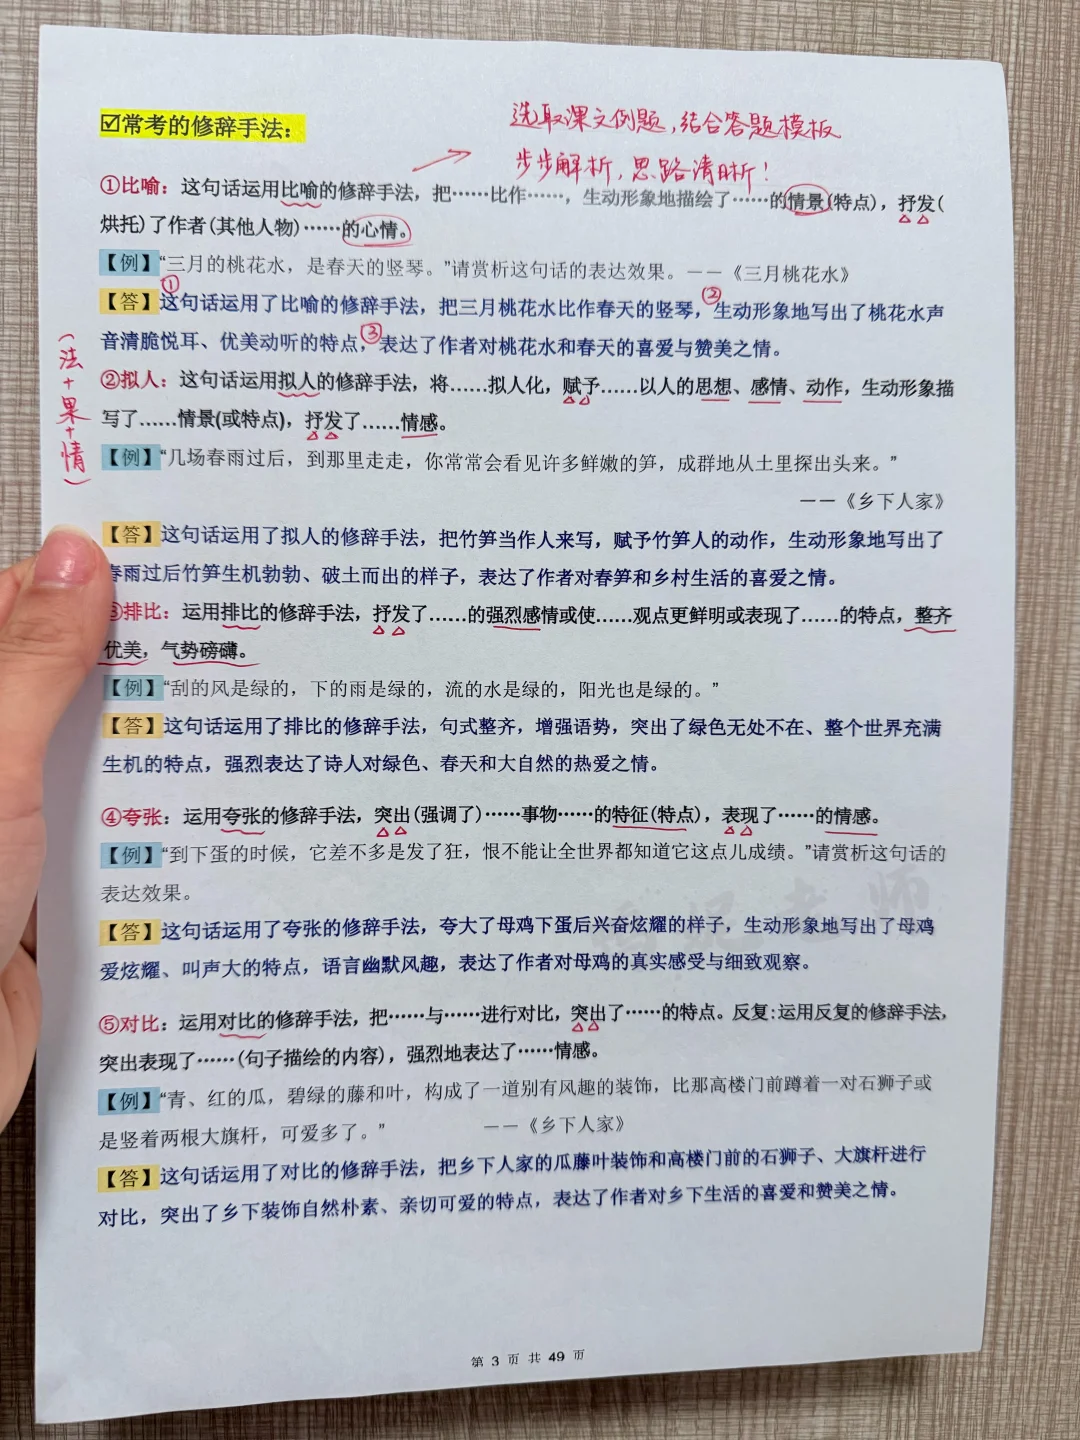 ☑常考的修辞手法：
选取课文例题，结合答题模板
步步解析，思路清晰！
①比喻：这句话运用比喻的修辞手法，把……比作……，生动形象地描绘了……的情景(特点)，抒发(
烘托)了作者(其他人物)……的心情。
【例】“三月的桃花水，是春天的竖琴。”请赏析这句话的表达效果。——《三月桃花水》
①
②
【答】这句话运用了比喻的修辞手法，把三月桃花水比作春天的竖琴，生动形象地写出了桃花水声
③
音清脆悦耳、优美动听的特点，表达了作者对桃花水和春天的喜爱与赞美之情。
（法+果+情）
②拟人：这句话运用拟人的修辞手法，将……拟人化，赋予……以人的思想、感情、动作，生动形象描
写了……情景(或特点)，抒发了……情感。
【例】“几场春雨过后，到那里走走，你常常会看见许多鲜嫩的笋，成群地从土里探出头来。”
——《乡下人家》
【答】这句话运用了拟人的修辞手法，把竹笋当作人来写，赋予竹笋人的动作，生动形象地写出了
春雨过后竹笋生机勃勃、破土而出的样子，表达了作者对春笋和乡村生活的喜爱之情。
③排比：运用排比的修辞手法，抒发了……的强烈感情或使……观点更鲜明或表现了……的特点，整齐
优美，气势磅礴。
【例】“刮的风是绿的，下的雨是绿的，流的水是绿的，阳光也是绿的。”
【答】这句话运用了排比的修辞手法，句式整齐，增强语势，突出了绿色无处不在、整个世界充满
生机的特点，强烈表达了诗人对绿色、春天和大自然的热爱之情。
④夸张：运用夸张的修辞手法，突出(强调了)……事物……的特征(特点)，表现了……的情感。
【例】“到下蛋的时候，它差不多是发了狂，恨不能让全世界都知道它这点儿成绩。”请赏析这句话的
表达效果。
【答】这句话运用了夸张的修辞手法，夸大了母鸡下蛋后兴奋炫耀的样子，生动形象地写出了母鸡
爱炫耀、叫声大的特点，语言幽默风趣，表达了作者对母鸡的真实感受与细致观察。
⑤对比：运用对比的修辞手法，把……与……进行对比，突出了……的特点。反复:运用反复的修辞手法，
突出表现了……(句子描绘的内容)，强烈地表达了……情感。
【例】“青、红的瓜，碧绿的藤和叶，构成了一道别有风趣的装饰，比那高楼门前蹲着一对石狮子或
是竖着两根大旗杆，可爱多了。” ——《乡下人家》
【答】这句话运用了对比的修辞手法，把乡下人家的瓜藤叶装饰和高楼门前的石狮子、大旗杆进行
对比，突出了乡下装饰自然朴素、亲切可爱的特点，表达了作者对乡下生活的喜爱和赞美之情。
第 3 页 共 49 页